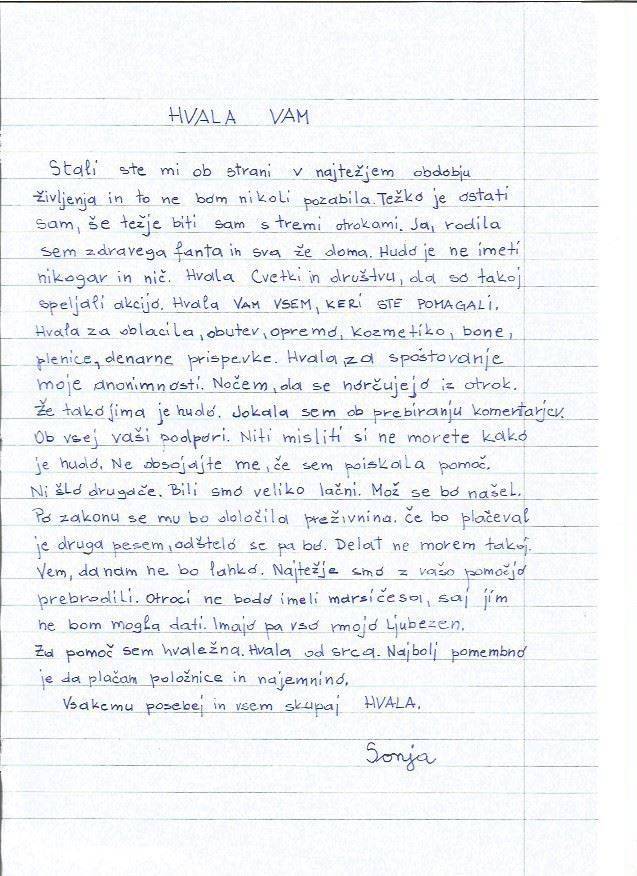 HVALA VAM
Stali ste mi ob strani v najtežjem obdobju
življenja in to ne bom nikoli pozabila. Težko je ostati
sam, še težje biti sam s tremi otrokami. Ja, rodila
sem zdravega fanta in sva že doma. Hudo je ne imeti
nikogar in nič. Hvala Cvetki in društvu, da so takoj
speljali akcijo. Hvala VAM VSEM, KERI STE POMAGALI.
Hvala za oblacila, obutev, opremo, kozmetiko, bone,
plenice, denarne prispevke. Hvala, za spoštovanje
moje anonimnosti. Nočem, da se norčujejo iz otrok.
Že tako jima je hudo. Jokala sem ob prebiranju komentarjev.
Ob vsej vaši podpori. Niti misliti si ne morete kako
je hudo. Ne obsojajte me, če sem poiskala pomoč.
Ni šlo drugače. Bili smo veliko lačni. Mož se bo našel.
Po zakonu se mu bo določila preživnina. Če bo plačeval
je druga pesem, odštelo se pa bo. Delat ne morem takoj.
Vem, da nam ne bo lahko. Najtežje smo z vašo pomočjo
prebrodili. Otroci ne bodo imeli marsičesa, saj jim
ne bom mogla dati. Imajo pa vso mojo ljubezen.
Za pomoč sem hvaležna. Hvala od srca. Najbolj pomembno
je da plačam položnice in najemnino.
Vsakemu posebej in vsem skupaj HVALA.
Sonja